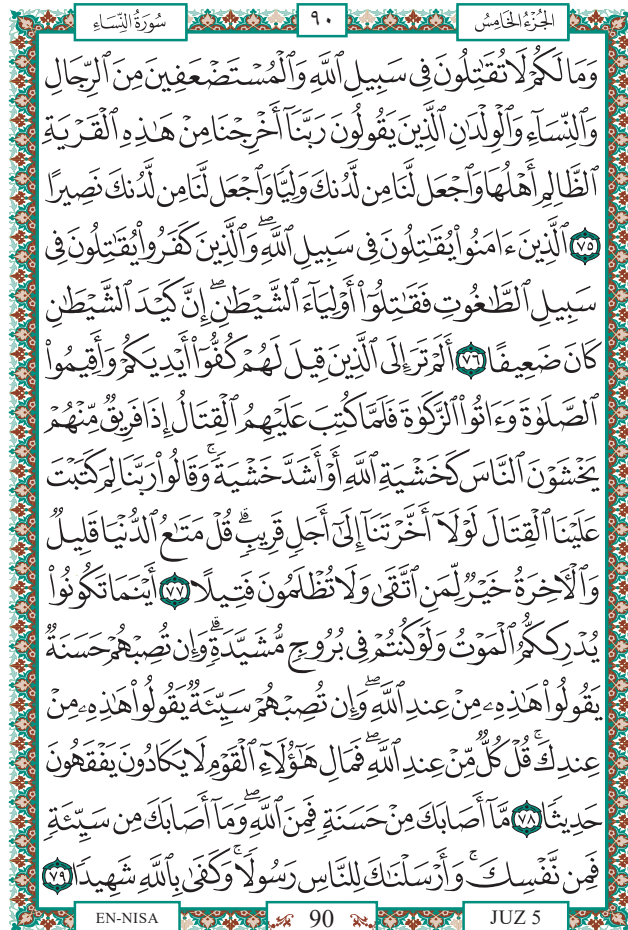 سُورَةُ النِّسَاءِ ٩٠ الجُزْءُ الخَامِسُ
وَمَا لَكُمْ لَا تُقَٰتِلُونَ فِى سَبِيلِ ٱللَّهِ وَٱلْمُسْتَضْعَفِينَ مِنَ ٱلرِّجَالِ
وَٱلنِّسَآءِ وَٱلْوِلْدَٰنِ ٱلَّذِينَ يَقُولُونَ رَبَّنَآ أَخْرِجْنَا مِنْ هَٰذِهِ ٱلْقَرْيَةِ
ٱلظَّالِمِ أَهْلُهَا وَٱجْعَل لَّنَا مِن لَّدُنكَ وَلِيًّا وَٱجْعَل لَّنَا مِن لَّدُنكَ نَصِيرًا
٧٥ ٱلَّذِينَ ءَامَنُوا۟ يُقَٰتِلُونَ فِى سَبِيلِ ٱللَّهِ ۖ وَٱلَّذِينَ كَفَرُوا۟ يُقَٰتِلُونَ فِى
سَبِيلِ ٱلطَّٰغُوتِ فَقَٰتِلُوٓا۟ أَوْلِيَآءَ ٱلشَّيْطَٰنِ ۖ إِنَّ كَيْدَ ٱلشَّيْطَٰنِ
كَانَ ضَعِيفًا ٧٦ أَلَمْ تَرَ إِلَى ٱلَّذِينَ قِيلَ لَهُمْ كُفُّوٓا۟ أَيْدِيَكُمْ وَأَقِيمُوا۟
ٱلصَّلَوٰةَ وَءَاتُوا۟ ٱلزَّكَوٰةَ فَلَمَّا كُتِبَ عَلَيْهِمُ ٱلْقِتَالُ إِذَا فَرِيقٌ مِّنْهُمْ
يَخْشَوْنَ ٱلنَّاسَ كَخَشْيَةِ ٱللَّهِ أَوْ أَشَدَّ خَشْيَةً ۚ وَقَالُوا۟ رَبَّنَا لِمَ كَتَبْتَ
عَلَيْنَا ٱلْقِتَالَ لَوْلَآ أَخَّرْتَنَآ إِلَىٰٓ أَجَلٍ قَرِيبٍ ۗ قُلْ مَتَٰعُ ٱلدُّنْيَا قَلِيلٌ
وَٱلْءَاخِرَةُ خَيْرٌ لِّمَنِ ٱتَّقَىٰ وَلَا تُظْلَمُونَ فَتِيلًا ٧٧ أَيْنَمَا تَكُونُوا۟
يُدْرِككُّمُ ٱلْمَوْتُ وَلَوْ كُنتُمْ فِى بُرُوجٍ مُّشَيَّدَةٍ ۗ وَإِن تُصِبْهُمْ حَسَنَةٌ
يَقُولُوا۟ هَٰذِهِۦ مِنْ عِندِ ٱللَّهِ ۖ وَإِن تُصِبْهُمْ سَيِّئَةٌ يَقُولُوا۟ هَٰذِهِۦ مِنْ
عِندِكَ ۚ قُلْ كُلٌّ مِّنْ عِندِ ٱللَّهِ ۖ فَمَالِ هَٰٓؤُلَآءِ ٱلْقَوْمِ لَا يَكَادُونَ يَفْقَهُونَ
حَدِيثًا ٧٨ مَّآ أَصَابَكَ مِنْ حَسَنَةٍ فَمِنَ ٱللَّهِ ۖ وَمَآ أَصَابَكَ مِن سَيِّئَةٍ
فَمِن نَّفْسِكَ ۚ وَأَرْسَلْنَٰكَ لِلنَّاسِ رَسُولًا ۚ وَكَفَىٰ بِٱللَّهِ شَهِيدًا ٧٩
EN-NISA 90 JUZ 5